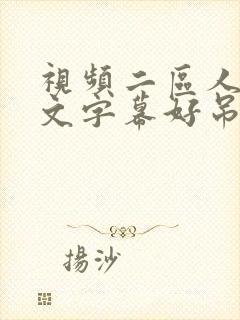 視頻二區人
文字幕好吊
揚沙